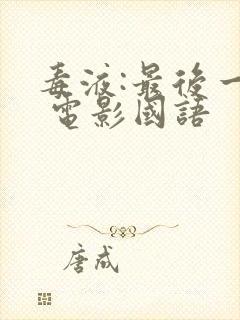 毒液:最後一
電影國語
唐成